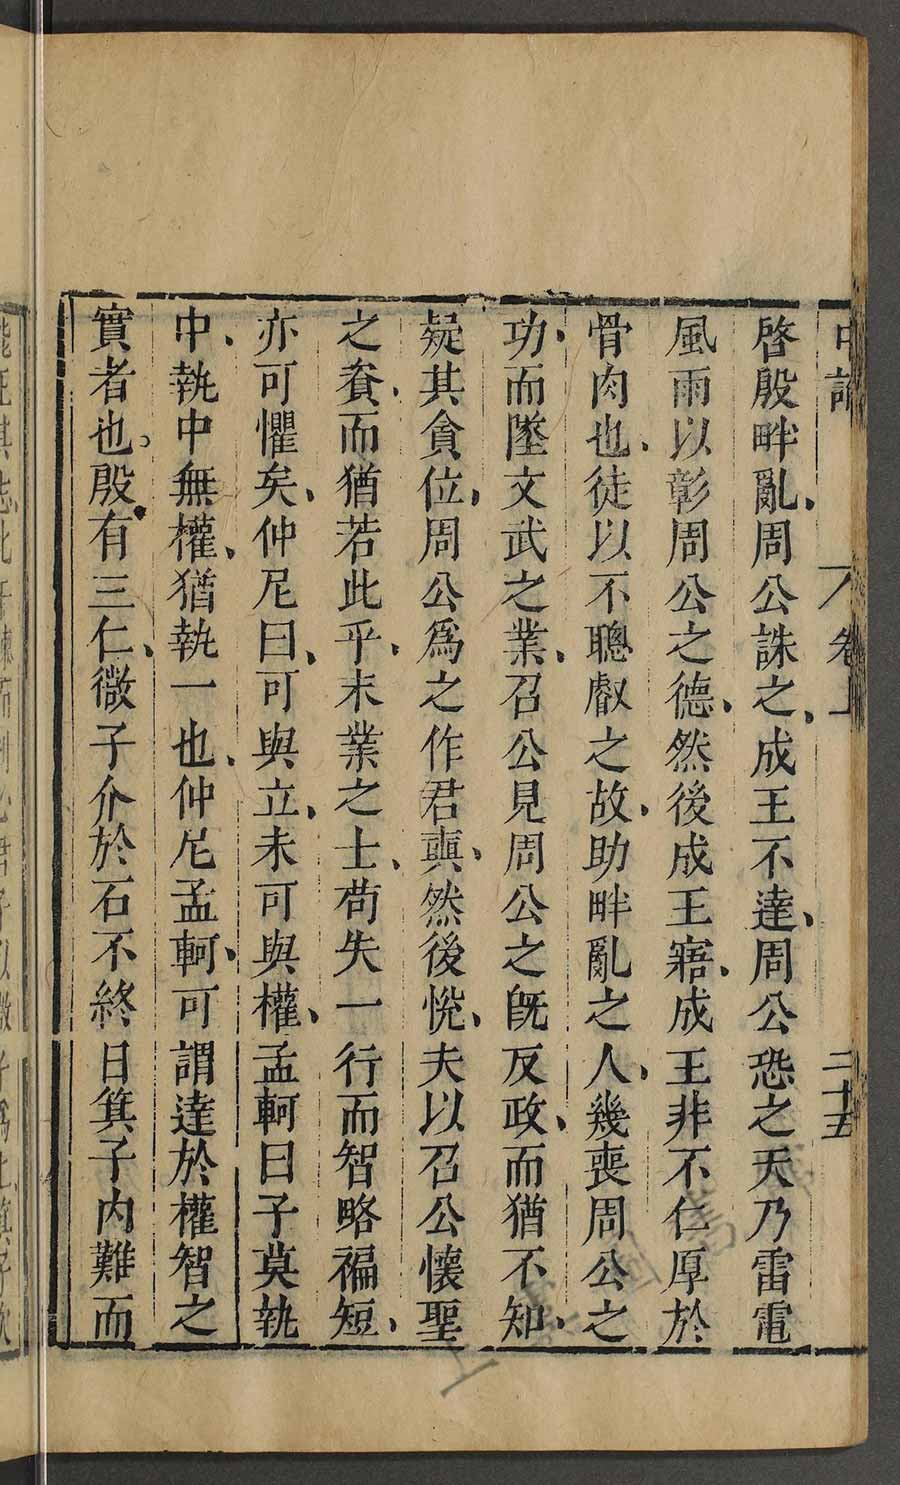 中論 卷上 二十五
啓殷畔亂周公誅之成王不達周公恐之天乃雷電
風雨以彰周公之德然後成王寤成王非不仁厚於
骨肉也徒以不聰叡之故助畔亂之人幾喪周公之
功而墜文武之業召公見周公之旣反政而猶不知
疑其貪位周公爲之作君奭然後悅夫以召公懷聖
之資而猶若此乎末業之士苟失一行而智略褊短
亦可懼矣仲尼曰可與立未可與權孟軻曰子莫執
中執中無權猶執一也仲尼孟軻可謂達於權智之
實者也殷有三仁微子介於石不終日箕子內難而